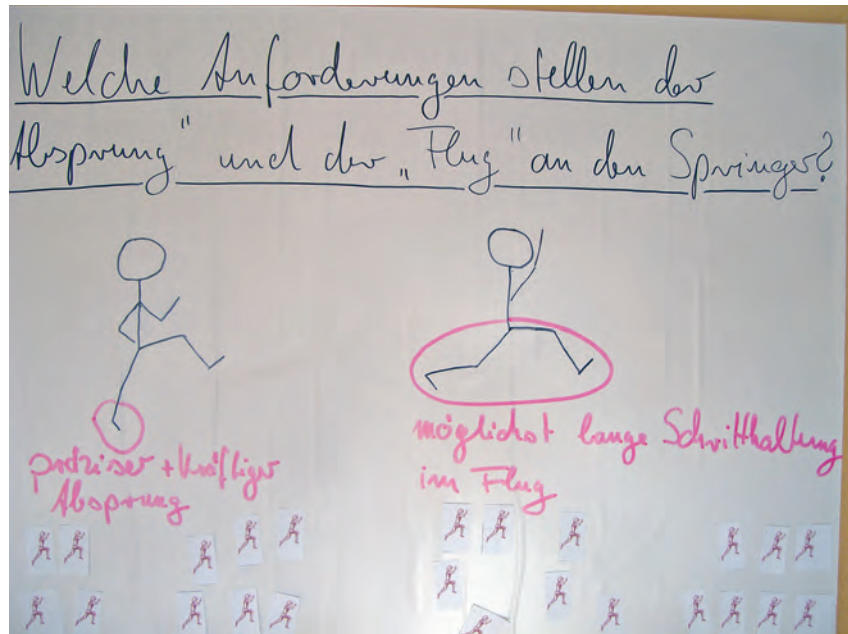 Welche Anforderungen stellen der
Absprung" und der „Flug" an den Springer?
präziser + kräftiger
Absprung
möglichst lange Schritthaltung
im Flug